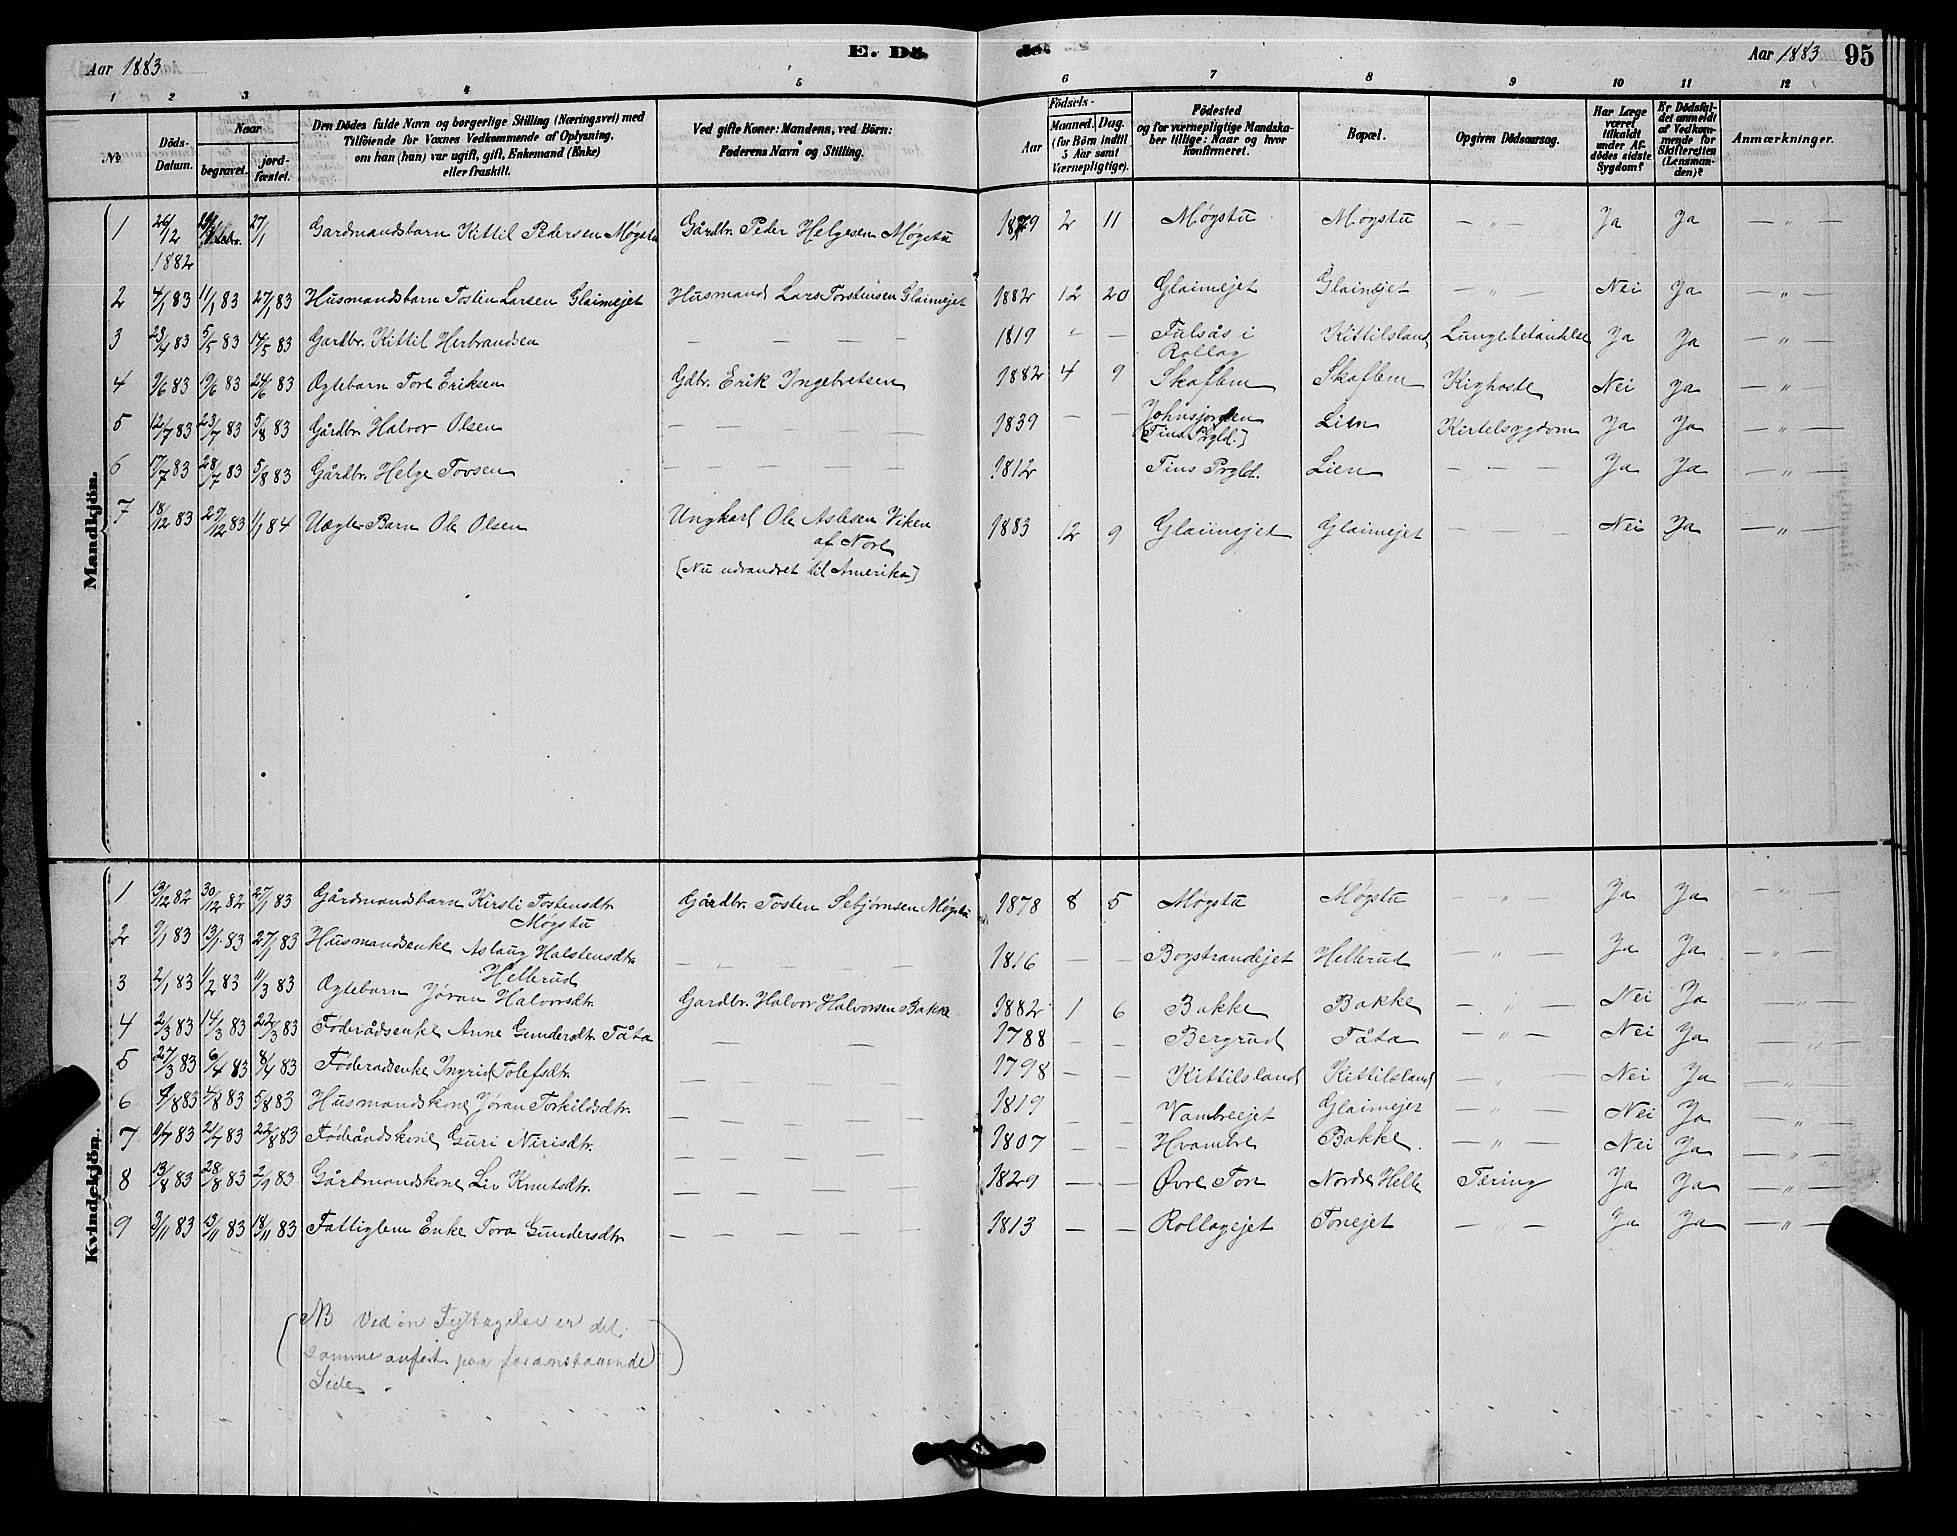 Aar 1883 E. Dö de. Aar 1883 95
1 2 3 4 5 6 7 8 9 10 11 12
№ Döds-Datum. Naar begravet. jord-fæstet. Den Dödes fulde Navn og borgerlige Stilling (Næringsvei) med Tilföiende for Voxnes Vedkommende af Oplysning, om han (hun) var ugift, gift, Enkemand (Enke) eller fraskilt. Ved gifte Koner: Mandens, ved Börn: Faderens Navn og Stilling. Födsels- Aar Maaned. Dag. (for Börn indtil 5 Aar samt Værnepligtige). Födested og for værnepligtige Mandska-ber tillige: Naar og hvor konfirmeret. Bopæl. Opgiven Dödsaarsag. Har Læge været tilkaldt under Af-dödes sidste Sygdom? Er Dödsfal-det anmeldt af Vedkom-mende for Skifteretten (Lensman-den)? Anmærkninger.
Mandkjön.
1 26/12 1882 27/1 Gardmandsbarn Kittil Pedersen Møgstu Gårdbr. Peder Helgesen Møgstu 1879 2 11 Møgstu Møgstu — " — Ja Ja — " —
2 4/1 83 11/1 83 27/1 83 Husmandsbarn Tosten Larsen Glaimejet Husmand Lars Torstensen Glaimejet 1882 12 20 Glaimejet Glaimejet — " — Nei Ja — " —
3 23/4 83 5/5 83 14/5 83 Gardbr. Kittil Herbrandsen — — — — 1819 " — Fulsås i Rollag Kittilsland Lungebetændelse Ja Ja — " —
4 9/6 83 19/6 83 24/6 83 Ægtebarn Tore Eriksen Gdbr. Erik Ingebretsen 1882 4 9 Skaflem Skaflem Kighoste Nei Ja — " —
5 12/7 83 23/7 83 5/8 83 Gårdbr. Halvor Olsen — — — — 1839 — — Johnsjorden [Tins Prgld.] Lien Kirtelsygdom Ja Ja — " —
6 17/7 83 28/7 83 5/8 83 Gårdbr. Helge Tovsen — — — — 1812 Tins Prgld. Lien — — — Ja Ja — " —
7 18/12 83 29/12 83 1/1 84 Uægte Barn Ole Olsen Ungkarl Ole Aslesen Viken af Nore [Nu udvandret til Amerika] 1883 12 9 Glaimejet Glaimejet — — Nei Ja — " —
Kvindekjön.
1 13/12 82 30/12 82 27/1 83 Gårdmandsbarn Kirsti Tostensdtr. Møgstu Gårdbr. Tosten Sebjørnsen Møgstu 1878 8 5 Møgstu Møgstu — " — Ja Ja — " —
2 9/1 83 13/1 83 27/1 83 Husmandsenke Aslaug Halstensdtr. Hellerud — " — — 1816 — — Bogstrandejet Hellerud — " — Ja Ja — " —
3 2/1 83 1/2 83 11/3 83 Ægtebarn Jøran Halvorsdtr. Gardbr. Halvor Halvorsen Bakke 1882 1 6 Bakke Bakke — " — Nei Ja — " —
4 2/3 83 14/3 83 22/3 83 Føderådsenke Anne Gundersdtr. Tåta — — — 1788 — — Bergrud Tåta — " — Nei Ja — " —
5 27/3 83 6/4 83 8/4 83 Føderadsenke Ingrid Tolefsdtr. — — — — 1798 — — Kittilsland Kittilsland — " — Nei Ja — " —
6 4/8 83 5/8 83 Husmandskone Jøran Torkildsdtr. — — — — 1819 — — Vambreejet Glaimejet — " — Nei Ja — " —
7 21/7 83 22/8 83 Føderådskone Guri Nirisdtr. — — — — 1807 — — Hvambre Bakke — " — Nei Ja — " —
8 13/8 83 28/8 83 2/9 83 Gårdmandskone Liv Knutsdtr. — — — — 1829 — — Øvre Ton Nordre Helle Tæring Ja Ja — " —
9 3/11 83 13/11 83 18/11 83 Fattiglem Enke Tora Gundersdtr. — — — — 1813 — — Rollagejet Tonejet — " — Ja Ja — " —
(NB Ved en Fejltagelse er det
samme anført paa foranstaaende)
Side.